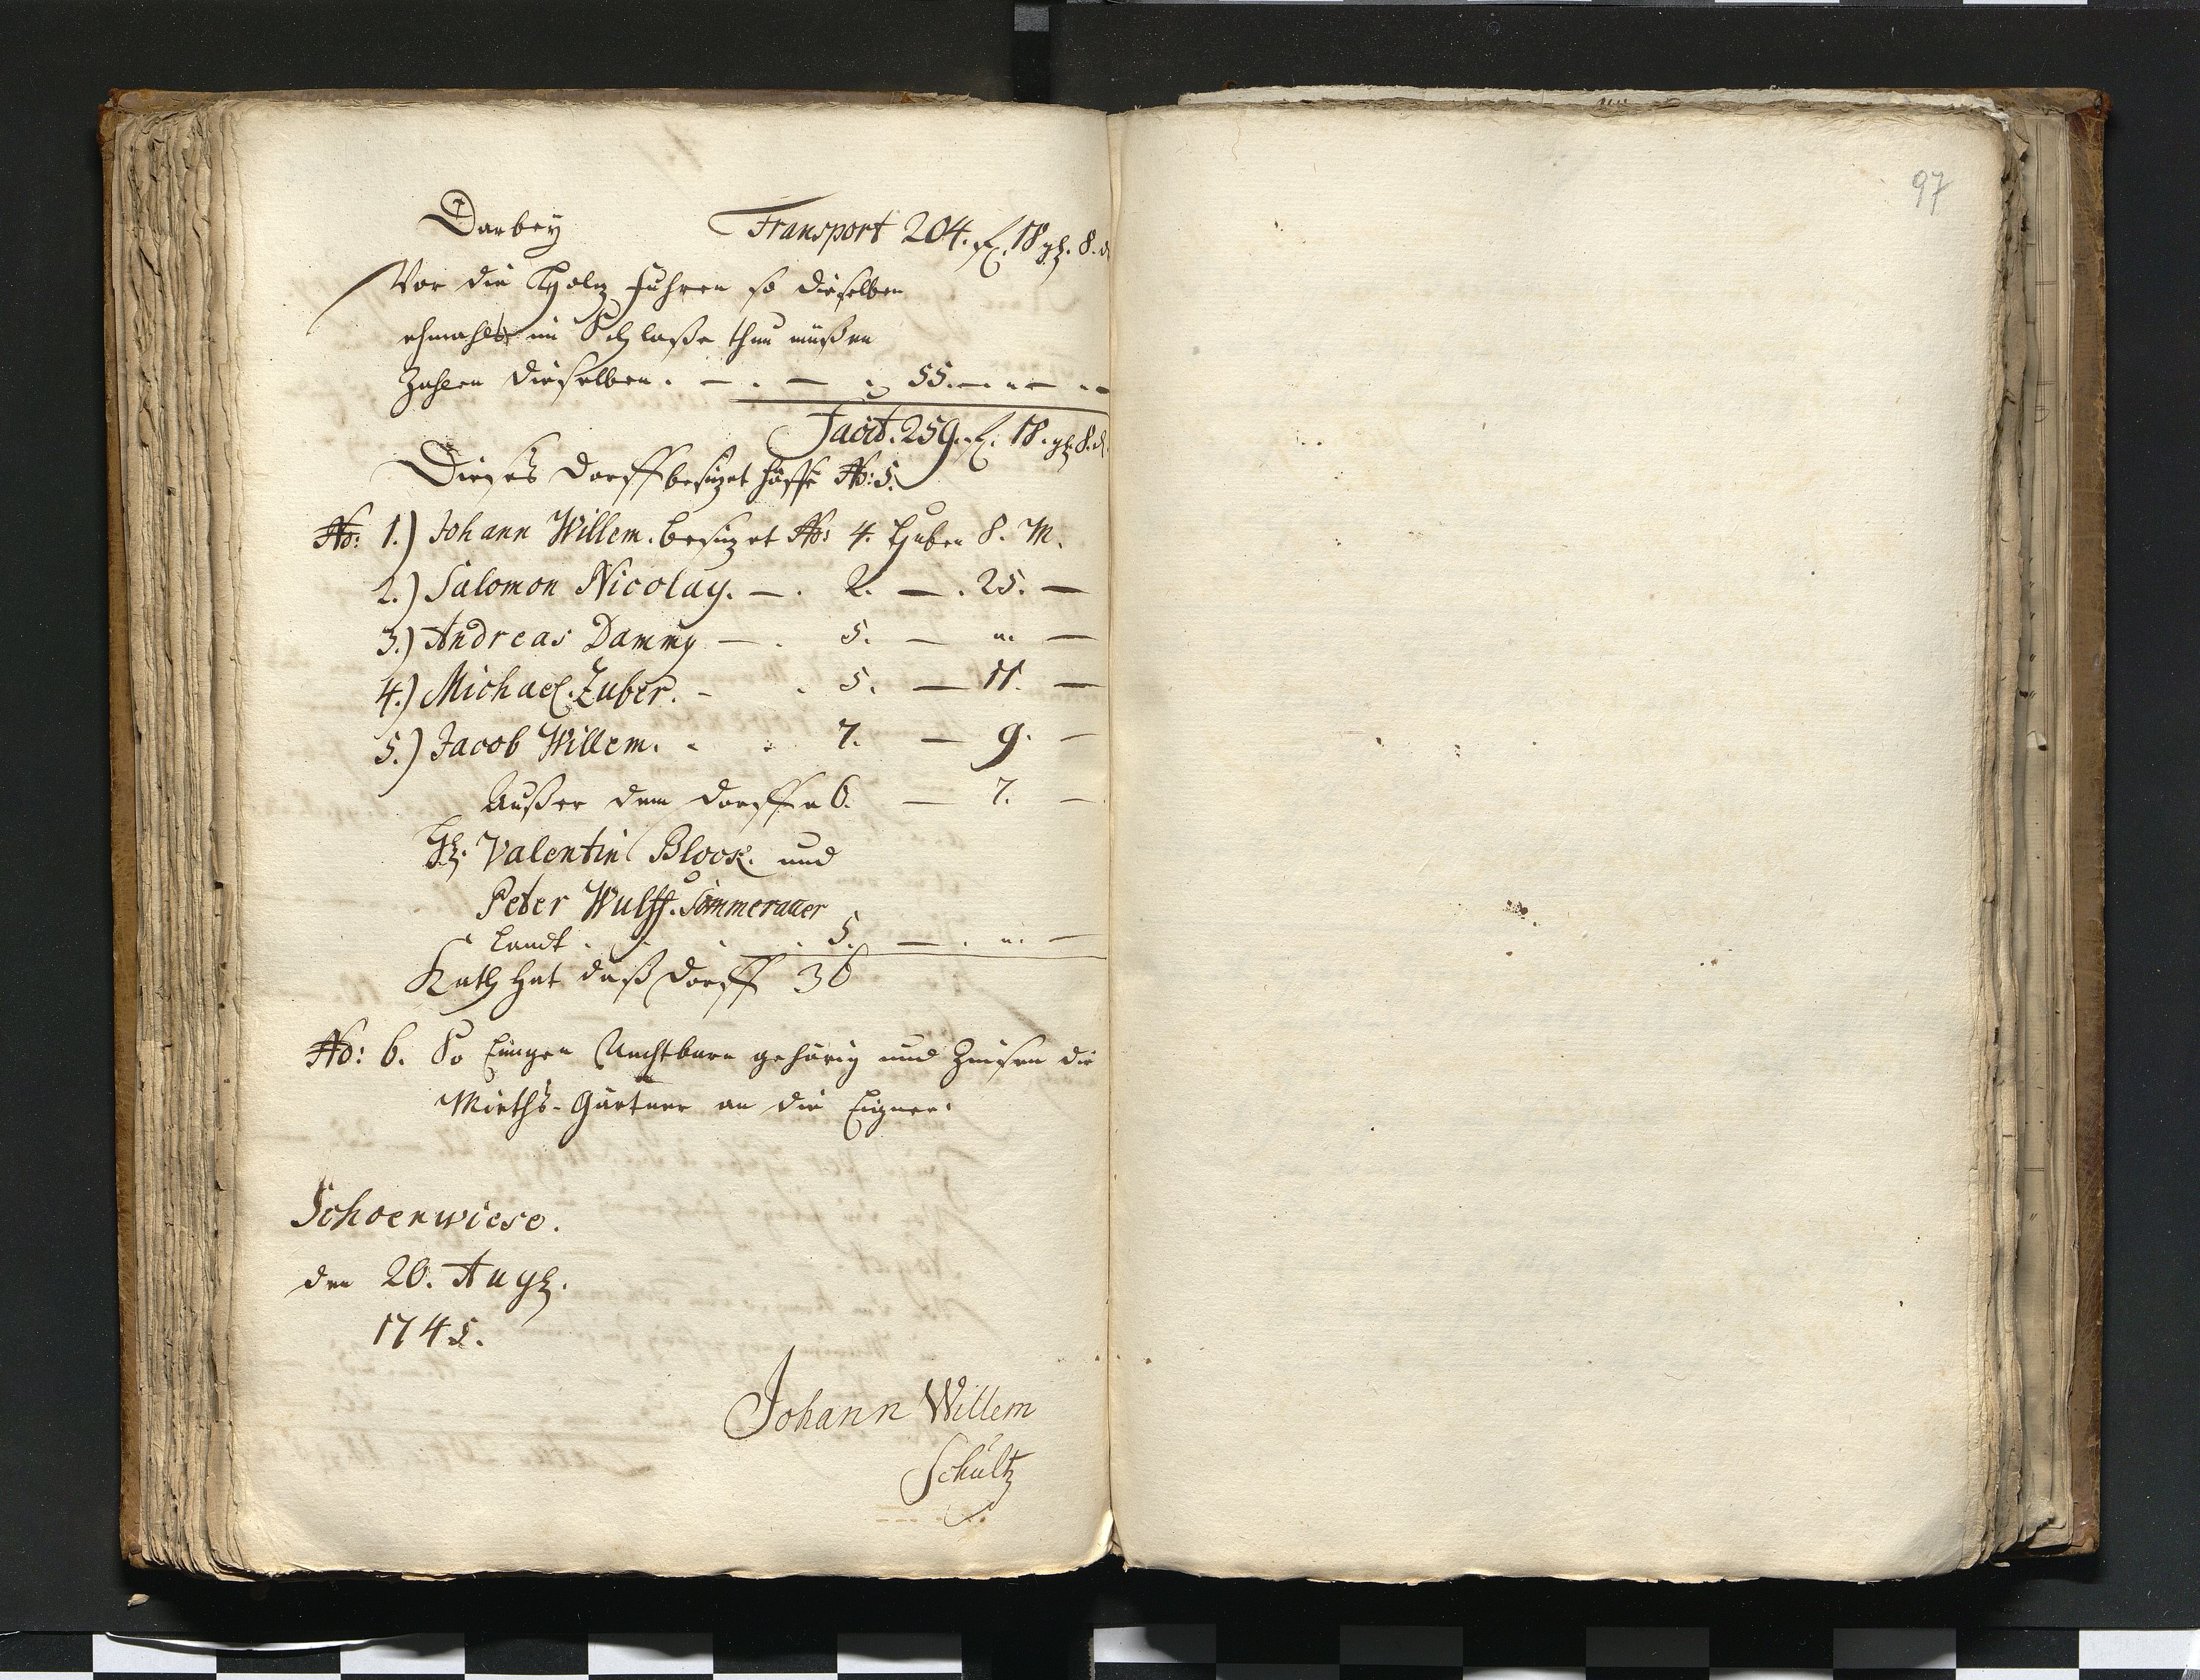 97
Darbey Transport 204. fl. 18 gl. 8. d
Vor die Holtz Fuhren so dieselben
ehmahls im Schlosse thun müßen
Zahlen dieselben. — . — . 55. — „ — „
Facit. 259. fl. 18. gl. 8. d.
Dieses Dorff besitzet Höffe No: 5.
No: 1.) Johann Willem. besitzet No: 4. Huben 8. M.
2.) Salomon Nicolay. — . 2. — . 25. —
3.) Andreas Dammy — . 5. — „. —
4.) Michael. Zuber. - . 5. — 11. —
5.) Jacob Willem. . . 7. — 9. —
Außer dem Dorffe 6. — 7. —
Valentin Block. und
Peter Wulff. Sommerauer
Landt . . . . 5. — . „. —
Kath hat daß Dorff 36
No: 6. So Eingen gehörig und Zinsen die
Mieths-Gärtner an die Eigner.
Schoenwiese.
den 20. Augt.
1745.
Johann Willem
Schultz